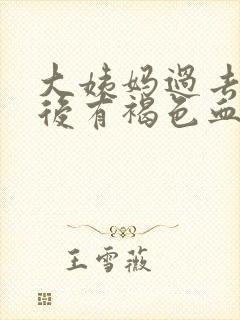 大姨妈过去
後有褐色血
王雪薇